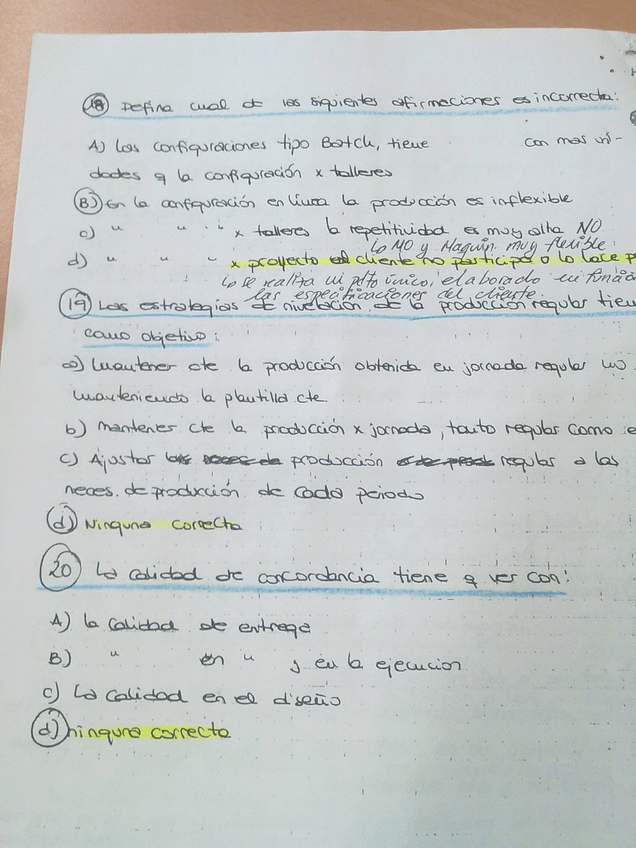 18 Defina cual de las siguientes afirmaciones es incorrecta:
A) Las configuraciones tipo Batch, tiene con mas uni-
dades q la configuración x talleres
B) En la configuración en línea la producción es inflexible
c) " " " x talleres la repetitividad es muy alta NO
Lo MO y Maquin. muy flexible
d) " " " x proyecto el cliente no participa o lo hace p
Lo se realiza un pdto único, elaborado en función
las especificaciones del cliente
19 Las estrategias de nivelación de la producción regular tien
como objetivo:
a) Mantener cte la producción obtenida en jornada regular
manteniendo la plantilla cte
b) Mantener cte la producción x jornada, tanto regular como e
c) Ajustar producción regular a las
neces. de producción de cada periodo
d) Ninguna correcta
20 La calidad de concordancia tiene q ver con:
A) la calidad de entrega
B) " en " y en la ejecucion
c) La calidad en el diseño
d) ninguna correcta